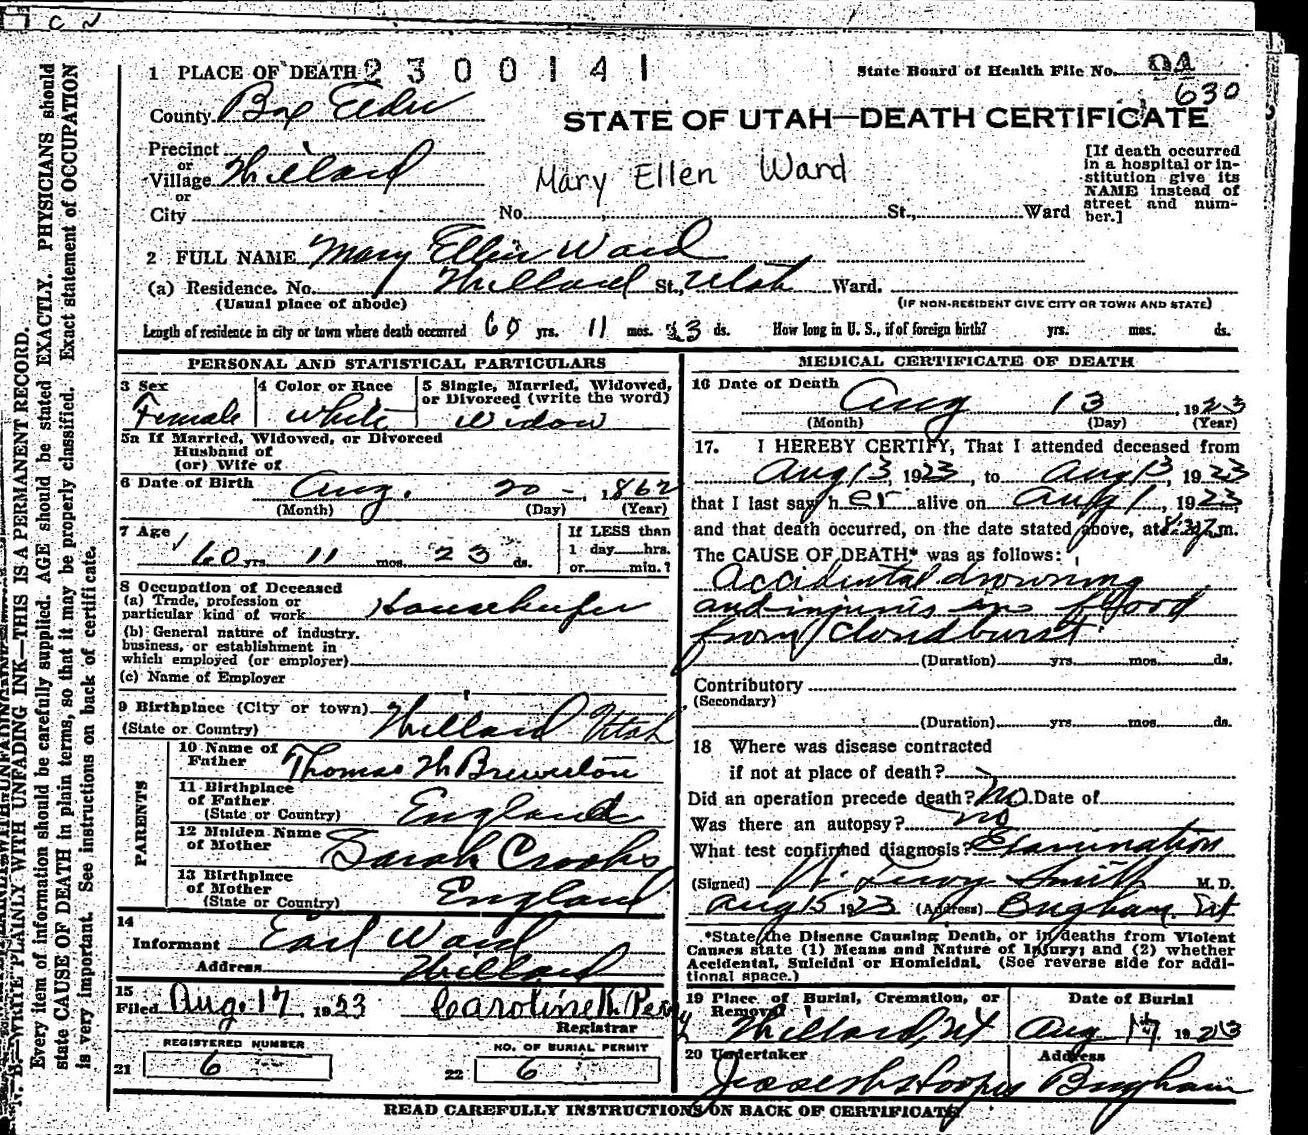 1 PLACE OF DEATH 2300141
State Board of Health File No. 94
630
County Box Elder
STATE OF UTAH—DEATH CERTIFICATE
Precinct
or
Village Willard
or
City
Mary Ellen Ward
No. St., Ward
[If death occurred
in a hospital or in-
stitution give its
NAME instead of
street and num-
ber.]
2 FULL NAME Mary Ellen Ward
(a) Residence. No. Willard St., Utah Ward.
(Usual place of abode)
(IF NON-RESIDENT GIVE CITY OR TOWN AND STATE)
Length of residence in city or town where death occurred 60 yrs. 11 mos. 23 ds. How long in U. S., if of foreign birth? yrs. mos. ds.
PERSONAL AND STATISTICAL PARTICULARS
3 Sex
Female
4 Color or Race
White
5 Single, Married, Widowed,
or Divorced (write the word)
Widow
5a If Married, Widowed, or Divorced
Husband of
(or) Wife of
6 Date of Birth Aug. 20 - , 1862
(Month) (Day) (Year)
7 Age
60 yrs. 11 mos. 23 ds.
If LESS than
1 day hrs.
or min.?
8 Occupation of Deceased
(a) Trade, profession or
particular kind of work Housekeeper
(b) General nature of industry,
business, or establishment in
which employed (or employer)
(c) Name of Employer
9 Birthplace (City or town)
(State or Country) Willard Utah
PARENTS
10 Name of
Father Thomas W Brewerton
11 Birthplace
of Father
(State or Country) England
12 Maiden Name
of Mother Sarah Crooks
13 Birthplace
of Mother
(State or Country) England
14
Informant Earl Ward
Address Willard
15
Filed Aug. 17 1923 Caroline K Perry
Registrar
REGISTERED NUMBER
21 6
NO. OF BURIAL PERMIT
22 6
MEDICAL CERTIFICATE OF DEATH
16 Date of Death
Aug 13, 1923
(Month) (Day) (Year)
17. I HEREBY CERTIFY, That I attended deceased from
Aug 13, 1923, to Aug 13, 1923
that I last say her alive on Aug 1, 1923,
and that death occurred, on the date stated above, at m.
The CAUSE OF DEATH* was as follows:
Accidental drowning
and injuries in flood
from cloudburst.
(Duration) yrs. mos. ds.
Contributory
(Secondary)
(Duration) yrs. mos. ds.
18 Where was disease contracted
if not at place of death?
Did an operation precede death? No. Date of
Was there an autopsy? no
What test confirmed diagnosis? Examination
(Signed) Smith M. D.
Aug 15 1923 (Address) Brigham Ut
*State the Disease Causing Death, or in deaths from Violent
Causes state (1) Means and Nature of Injury; and (2) whether
Accidental, Suicidal or Homicidal. (See reverse side for addi-
tional space.)
19 Place of Burial, Cremation, or
Removal
Willard, Ut
Date of Burial
Aug 17 1923
20 Undertaker
Hooper
Address
Brigham
READ CAREFULLY INSTRUCTIONS ON BACK OF CERTIFICATE
N. B.—WRITE PLAINLY WITH UNFADING INK—THIS IS A PERMANENT RECORD.
Every item of information should be carefully supplied. AGE should be stated EXACTLY. PHYSICIANS should
state CAUSE OF DEATH in plain terms, so that it may be properly classified. Exact statement of OCCUPATION
is very important. See instructions on back of certificate.